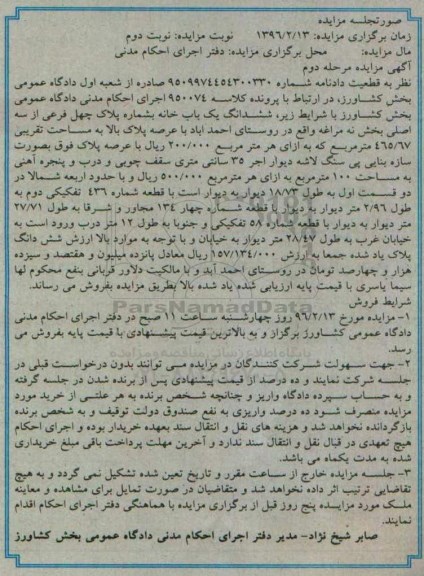 صورتجلسه مزایده
زمان برگزاری مزایده: ۱۳۹۶/۲/۱۳ نوبت مزایده: نوبت دوم
مال مزایده: محل برگزاری مزایده: دفتر اجرای احکام مدنی
آگهی مزایده مرحله دوم
نظر به قطعیت دادنامه شماره ۹۵۰۹۹۷۴۴۵۴۳۰۰۳۳۰ صادره از شعبه اول دادگاه عمومی
بخش کشاورز، در ارتباط با پرونده کلاسه ۹۵۰۰۷۴ اجرای احکام مدنی دادگاه عمومی
بخش کشاورز با شرایط زیر، ششدانگ یک باب خانه بشماره پلاک چهل فرعی از سه
اصلی بخش نه مراغه واقع در روستای احمد اباد با عرصه پلاک بالا به مساحت تقریبی
۴۶۵/۶۷ مترمربع که به ازای هر متر مربع ۲۰۰/۰۰۰ ریال با عرصه پلاک فوق بصورت
سازه بنایی پی سنگ لاشه دیوار اجر ۳۵ سانتی متری سقف چوبی و درب و پنجره آهنی
به مساحت ۱۰۰ مترمربع به ازای هر مترمربع ۵۰۰/۰۰۰ ریال و با حدود اربعه شمالا در
دو قسمت اول به طول ۱۸/۷۳ دیوار به دیوار است با قطعه شماره ۴۳۶ تفکیکی دوم به
طول ۲/۹۶ متر دیوار به دیوار با قطعه شماره چهار ۱۳۴ مجاور و شرقا به طول ۲۷/۷۱
متر دیوار به دیوار با قطعه شماره ۵۸ تفکیکی و جنوبا به طول ۱۲ متر درب ورود است به
خیابان غرب به طول ۲۸/۴۷ متر دیوار به خیابان و با توجه به موارد بالا ارزش شش دانگ
پلاک یاد شده جمعا به ارزش ۱۵۷/۱۳۴/۰۰۰ ریال معادل پانزده میلیون و هفتصد و سیزده
هزار و چهارصد تومان در روستای احمد آبد و با مالکیت دلاور قربانی بنفع محکوم لها
سیما یاسری با قیمت پایه ارزیابی شده یاد شده بالا بطریق مزایده بفروش می رساند.
شرایط فروش
۱- مزایده مورخ ۹۶/۲/۱۳ روز چهارشنبه ساعت ۱۱ صبح در دفتر اجرای احکام مدنی
دادگاه عمومی کشاورز برگزاز و به بالاترین قیمت پیشنهادی با قیمت پایه بفروش می
رسد.
۲- جهت سهولت شرکت کنندگان در مزایده می توانند بدون درخواست قبلی در
جلسه شرکت نمایند و ده درصد از قیمت پیشنهادی پس از برنده شدن در جلسه گرفته
و به حساب سپرده دادگاه واریز و چنانچه شخص برنده به هر علتی از خرید مورد
مزایده منصرف شود ده درصد واریزی به نفع صندوق دولت توقیف و به شخص برنده
بازگردانده نخواهد شد و هزینه های نقل و انتقال سند بعهده خریدار بوده و اجرای احکام
هیچ تعهدی در قبال نقل و انتقال سند ندارد و آخرین مهلت پرداخت باقی مبلغ خریداری
شده به مدت یکماه می باشد.
۳- جلسه مزایده خارج از ساعت مقرر و تاریخ تعین شده تشکیل نمی گردد و به هیچ
تقاضایی ترتیب اثر داده نخواهد شد و متقاضیان در صورت تمایل برای مشاهده و معاینه
ملک مورد مزایده پنج روز قبل از برگزاری مزایده با هماهنگی دفتر اجرای احکام اقدام
نمایند.
صابر شیخ نژاد- مدیر دفتر اجرای احکام مدنی دادگاه عمومی بخش کشاورز
ParsNamadData